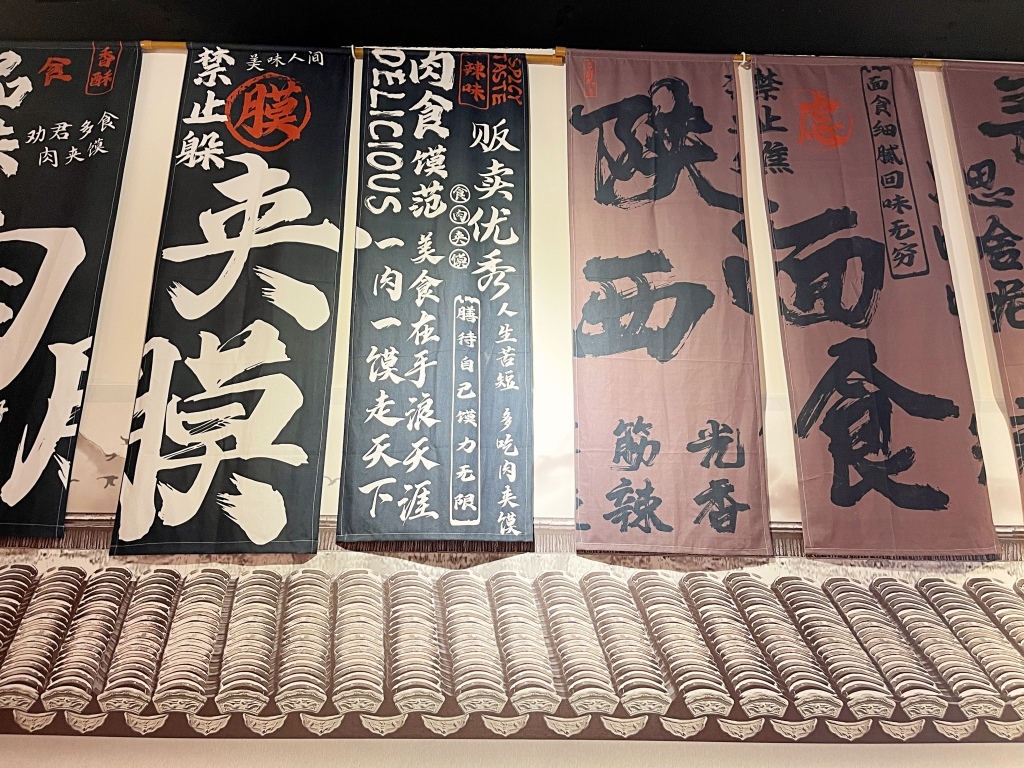 香酥
食
劝君多食
肉夹馍
肉
禁止躲
美味人间
膜
夹膜
DELICIOUS
肉食馍范
辣味
SPICY
TASTE
贩卖优秀
食肉夹馍
一肉一馍走天下
美食在手浪天涯
膳待自己馍力无限
人生苦短 多吃肉夹馍
陕西
筋
光
辣
香
禁止
虑
面食细腻回味无穷
面食
思
舍